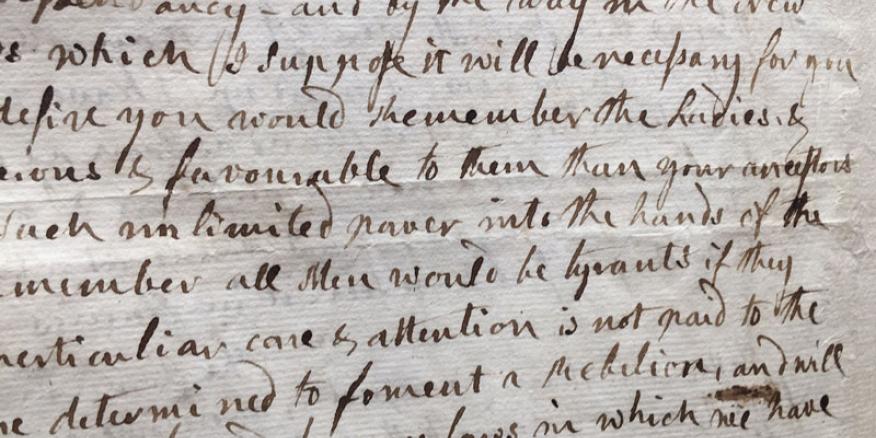 ancy - and by the way in the new
which I suppose it will be necessary for you
desire you would Remember the Ladies, &
& favourable to them than your ancestors
such unlimited power into the hands of the
member all Men would be tyrants if they
perticuliar care & attention is not paid to the
determined to foment a Rebelion, and will
laws in which we have